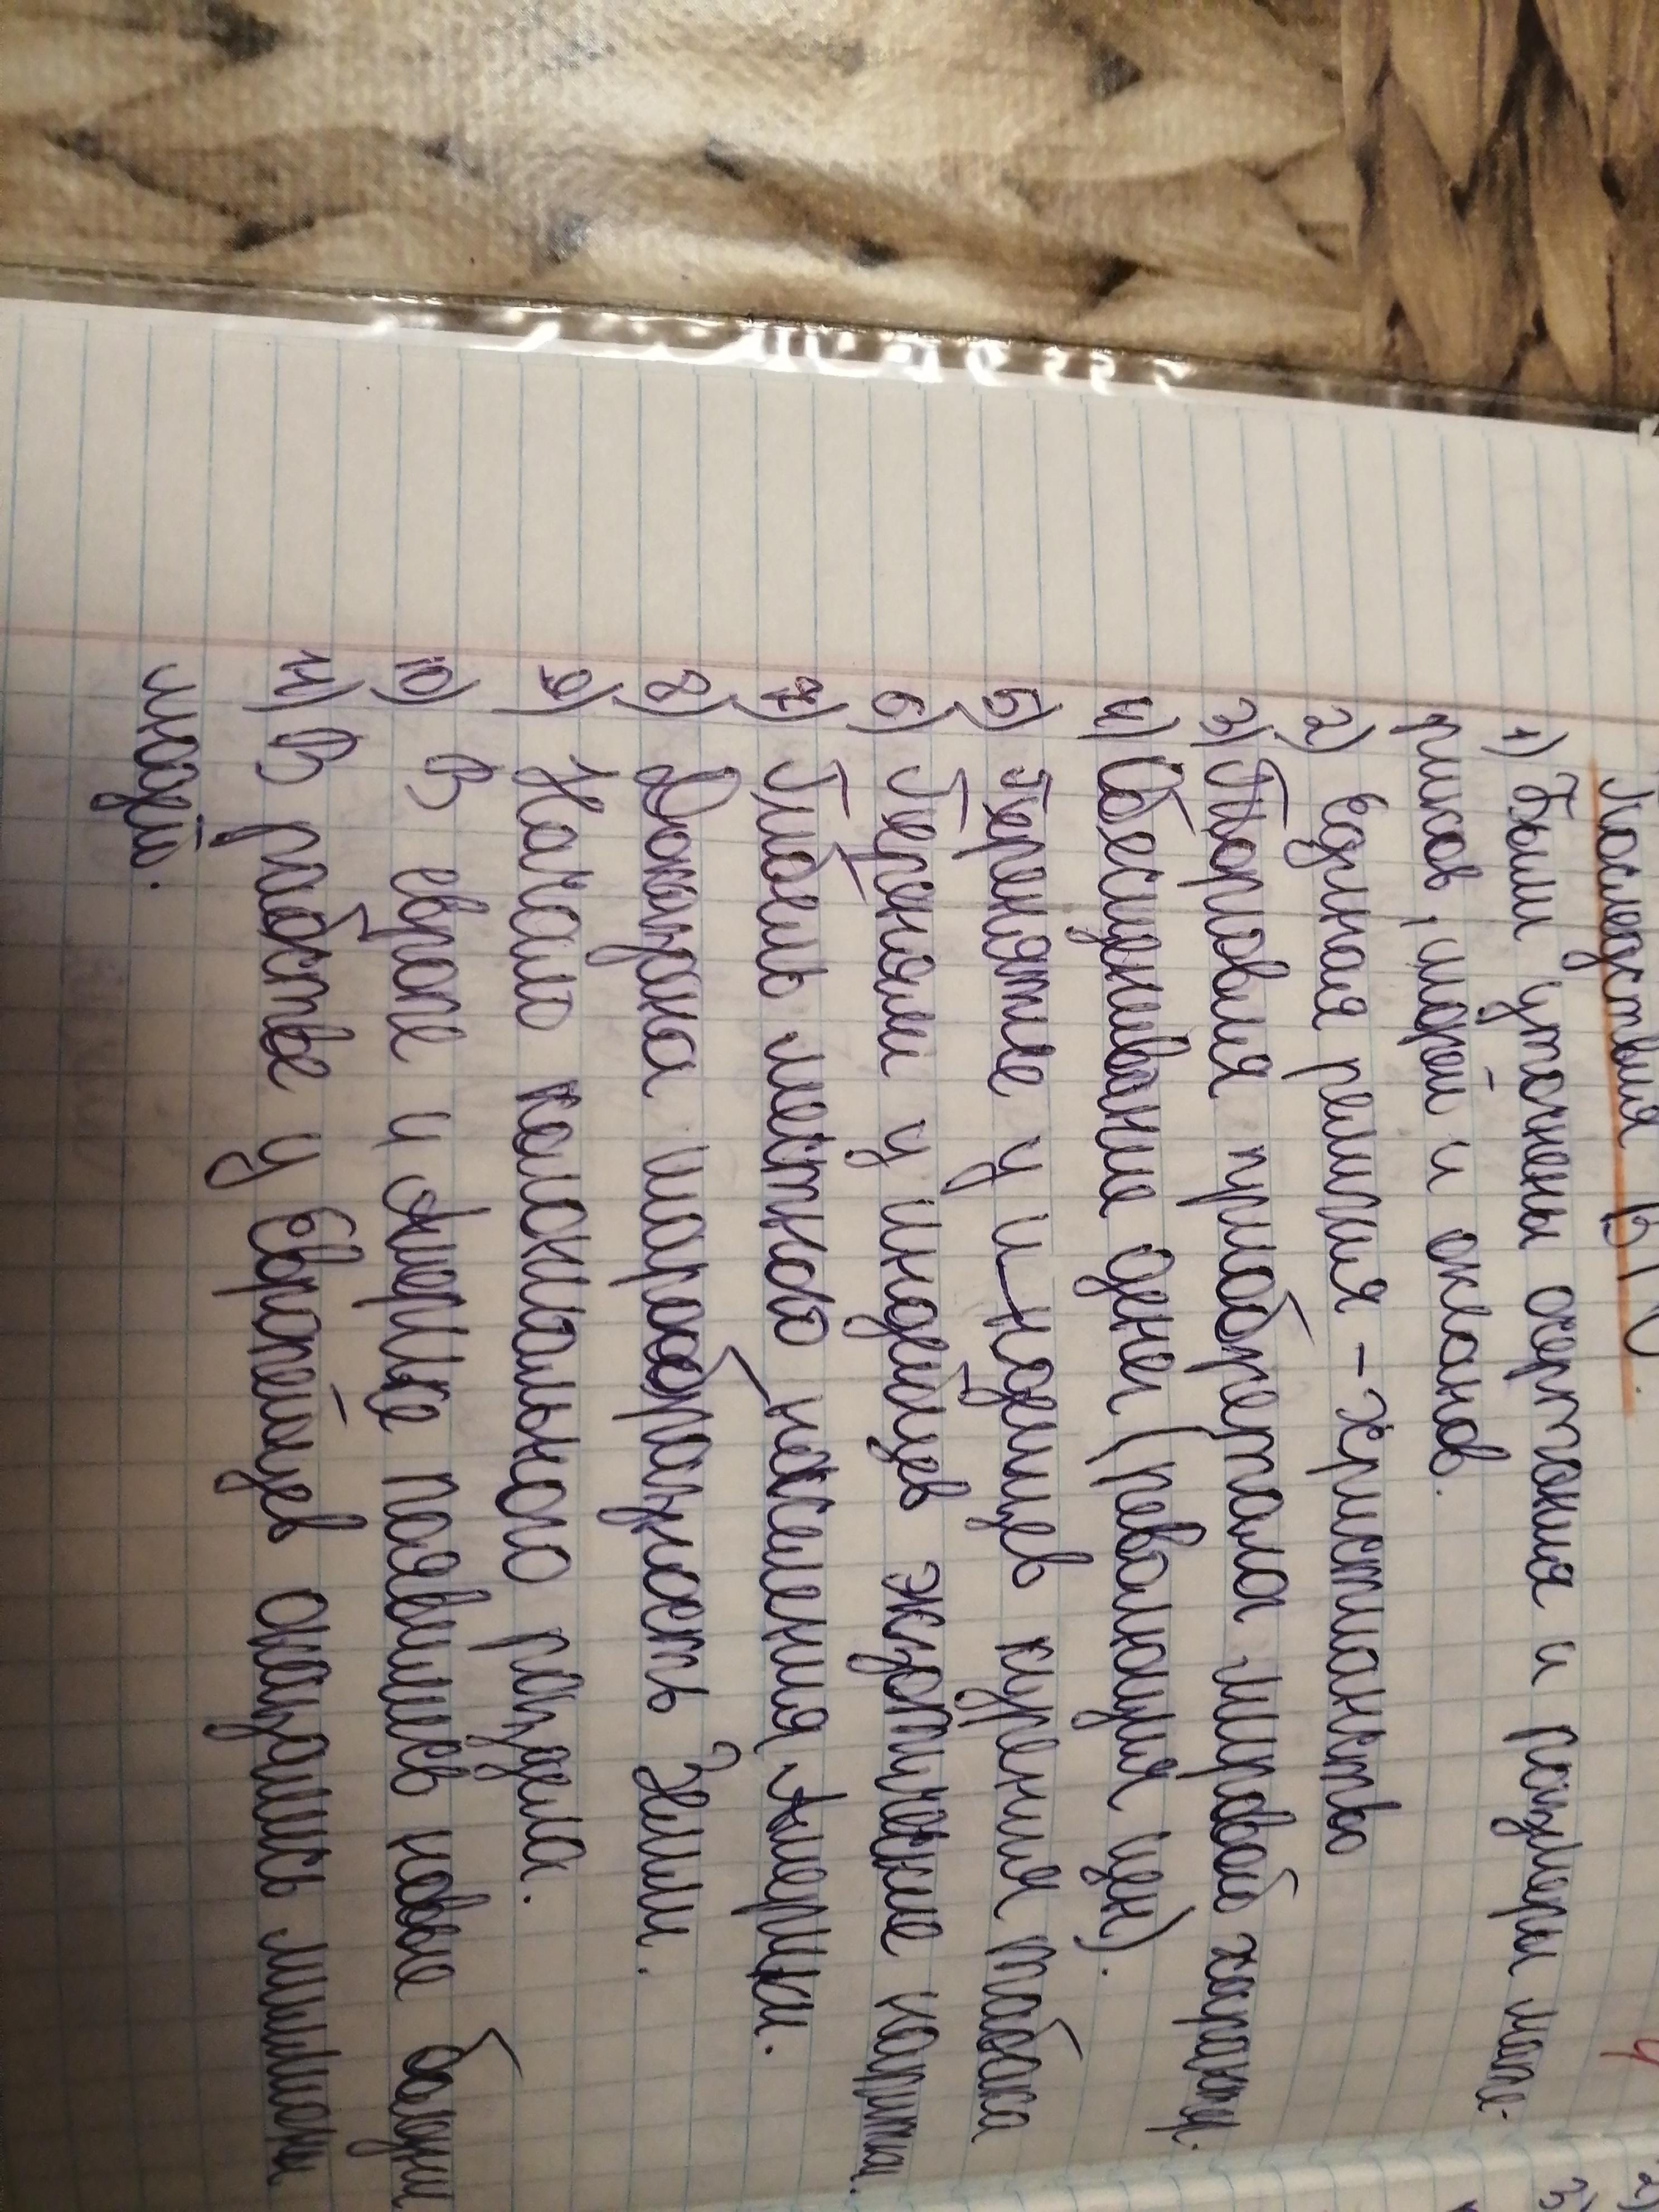 Последствия ВГО.
1) Были уточнены очертания и размеры мате-
риков, морей и океанов.
2) Единая религия - христианство
3) Торговля приобретала мировой характер.
4) Обесценивание денег (революция цен).
5) Перенятие у индейцев курения табака
6) Переняли у индейцев экзотические напитки.
7) Гибель местного населения Америки.
8) Доказана шарообразность Земли.
9) Начало колониального раздела.
10) В европе и Америке появились новые болезни
11) В рабстве у Европейцев оказались миллионы
людей.
2)
3)